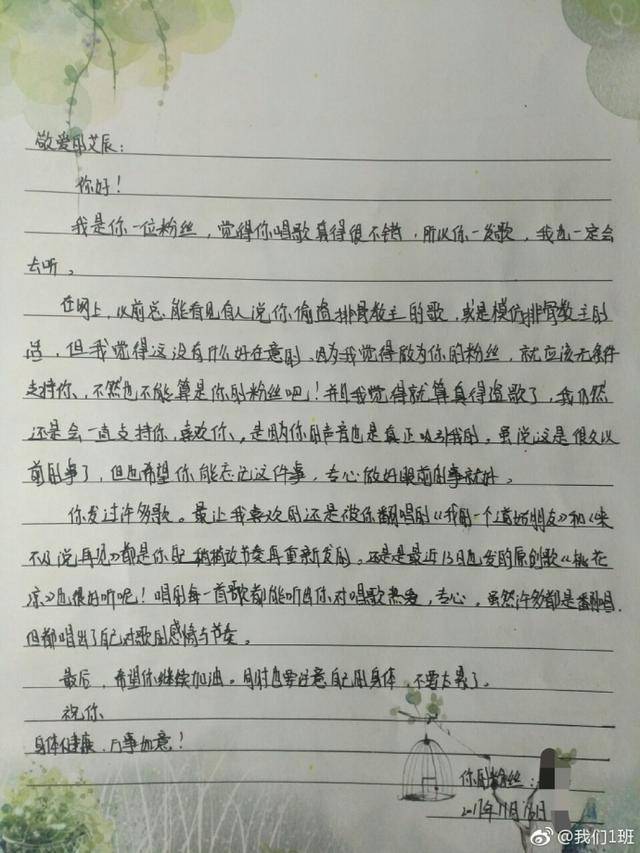 敬爱的艾辰：
你好！
我是你一位粉丝，觉得你唱歌真得很不错，所以你一发歌，我也一定会
去听。
在网上，以前总能看见有人说你偷盗排骨教主的歌，或是模仿排骨教主的
但我觉得这没有什么好在意的，因为我觉得做为你的粉丝，就应该无条件
支持你、不然也不能算是你的粉丝吧！并且我觉得就算真得盗歌了，我仍然
还是会一直支持你、喜欢你、是因为你的声音也是真正吸引我的，虽说这是很久以
前的事了，但也希望你能忘记这件事，专心做好眼前的事就好。
你发过许多歌。最让我喜欢的还是被你翻唱的《我的一个道姑朋友》和《来
不及说再见》都是你配稍稍改节奏再重新发的。还是是最近13日也发的原创歌《桃花
凉》也很好听呢！唱的每一首歌都能听出你对唱歌热爱，专心。虽然许多都是翻唱，
但都唱出了自己对歌的感情与节奏。
最后，希望你继续加油。同时也要注意自己的身体，不要太累了。
祝你
身体健康、万事如意！
你的粉丝：
2017年11月13日
@我们1班